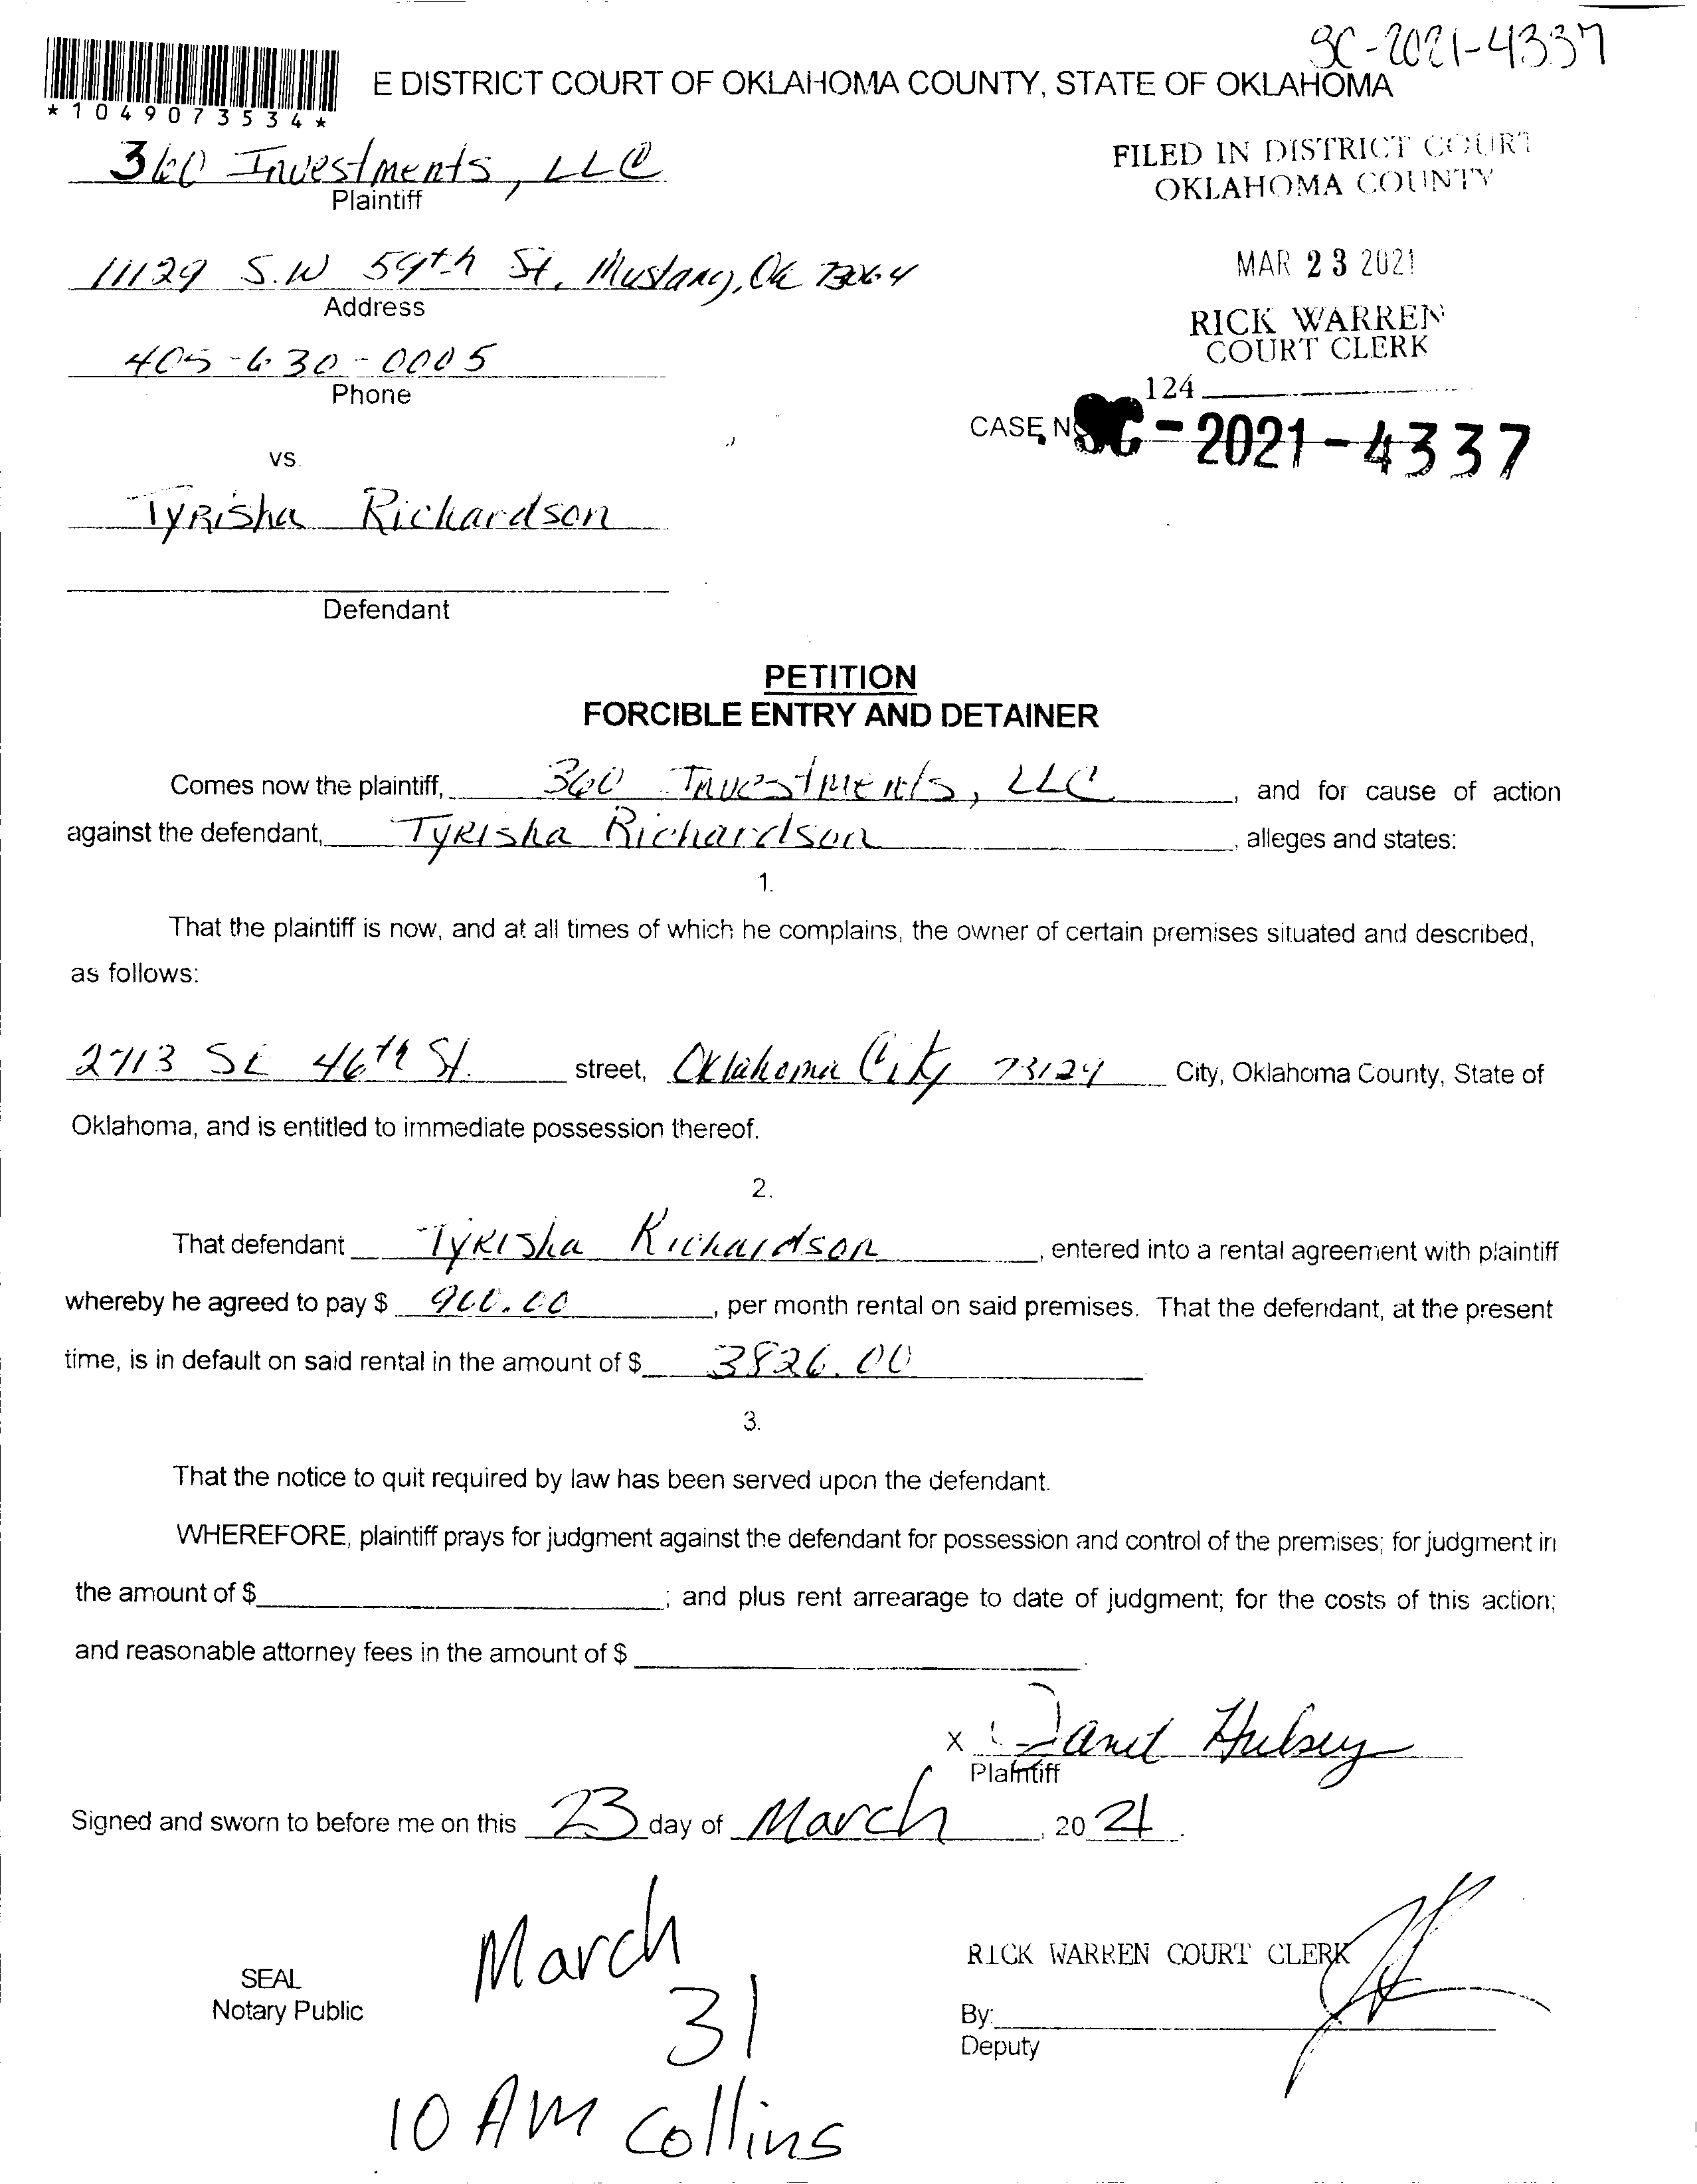 SC-2021-4337
E DISTRICT COURT OF OKLAHOMA COUNTY, STATE OF OKLAHOMA
*1049073534*
360 Investments, LLC
Plaintiff
FILED IN DISTRICT COURT
OKLAHOMA COUNTY
11129 S.W 59th St. Mustang, Ok 73064
Address
MAR 23 2021
RICK WARREN
COURT CLERK
405-630-0005
Phone
124
CASE NO SC-2021-4337
vs.
Tyrisha Richardson
Defendant
PETITION
FORCIBLE ENTRY AND DETAINER
Comes now the plaintiff, 360 Investments, LLC, and for cause of action
against the defendant, Tyrisha Richardson, alleges and states:
1.
That the plaintiff is now, and at all times of which he complains, the owner of certain premises situated and described,
as follows:
2713 SE 46th St. street, Oklahoma City 73129 City, Oklahoma County, State of
Oklahoma, and is entitled to immediate possession thereof.
2.
That defendant Tyrisha Richardson, entered into a rental agreement with plaintiff
whereby he agreed to pay $ , per month rental on said premises. That the defendant, at the present
time, is in default on said rental in the amount of $ 3826.00
3.
That the notice to quit required by law has been served upon the defendant.
WHEREFORE, plaintiff prays for judgment against the defendant for possession and control of the premises; for judgment in
the amount of $ ; and plus rent arrearage to date of judgment; for the costs of this action;
and reasonable attorney fees in the amount of $ .
X Janet Hulsey
Plaintiff
Signed and sworn to before me on this 23 day of March, 2021.
March
31
10 AM Collins
SEAL
Notary Public
RICK WARREN COURT CLERK
By:
Deputy